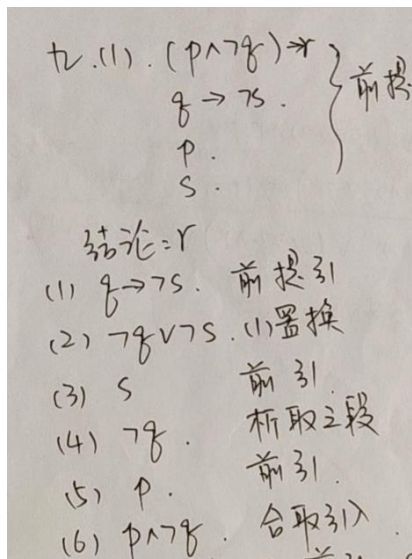 九.(1). (p∧¬q)→r
q→¬s.
p.
s.
前提
结论:r
(1) q→¬s. 前提引
(2) ¬q∨¬s. (1)置换
(3) s 前引
(4) ¬q. 析取三段
(5) p. 前引.
(6) p∧¬q. 合取引入